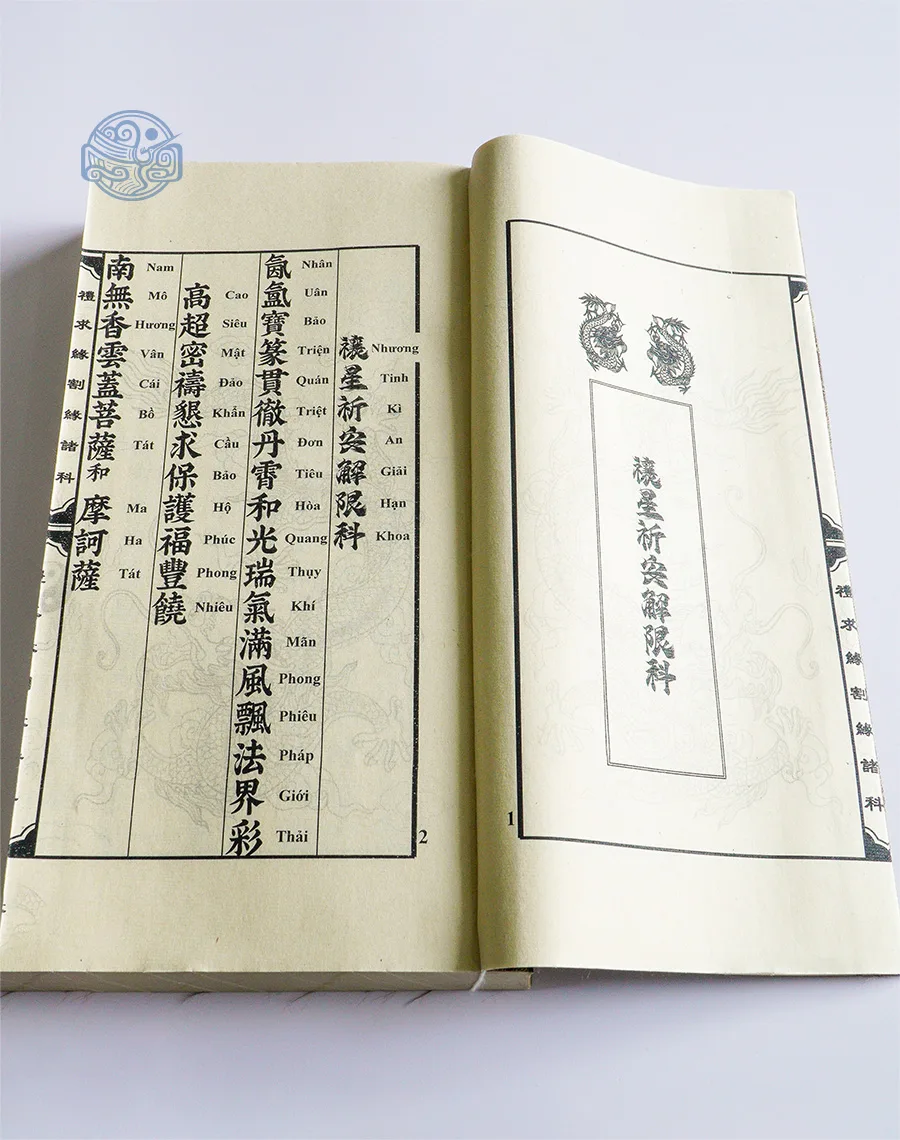 禮求緣割緣諸科
禳星祈安解限科
1
Nhương Tinh Kì An Giải Hạn Khoa
禳星祈安解限科
Nhân Uân Bảo Triện Quán Triệt Đơn Tiêu Hòa Quang Thụy Khí Mãn Phong Phiêu Pháp Giới Thải
氤氳寶篆貫徹丹霄和光瑞氣滿風飄法界彩
Cao Siêu Mật Đảo Khẩn Cầu Bảo Hộ Phúc Phong Nhiêu
高超密禱懇求保護福豐饒
Nam Mô Hương Vân Cái Bồ Tát Ma Ha Tát
南無香雲蓋菩薩和摩訶薩
禮求緣割緣諸科
2